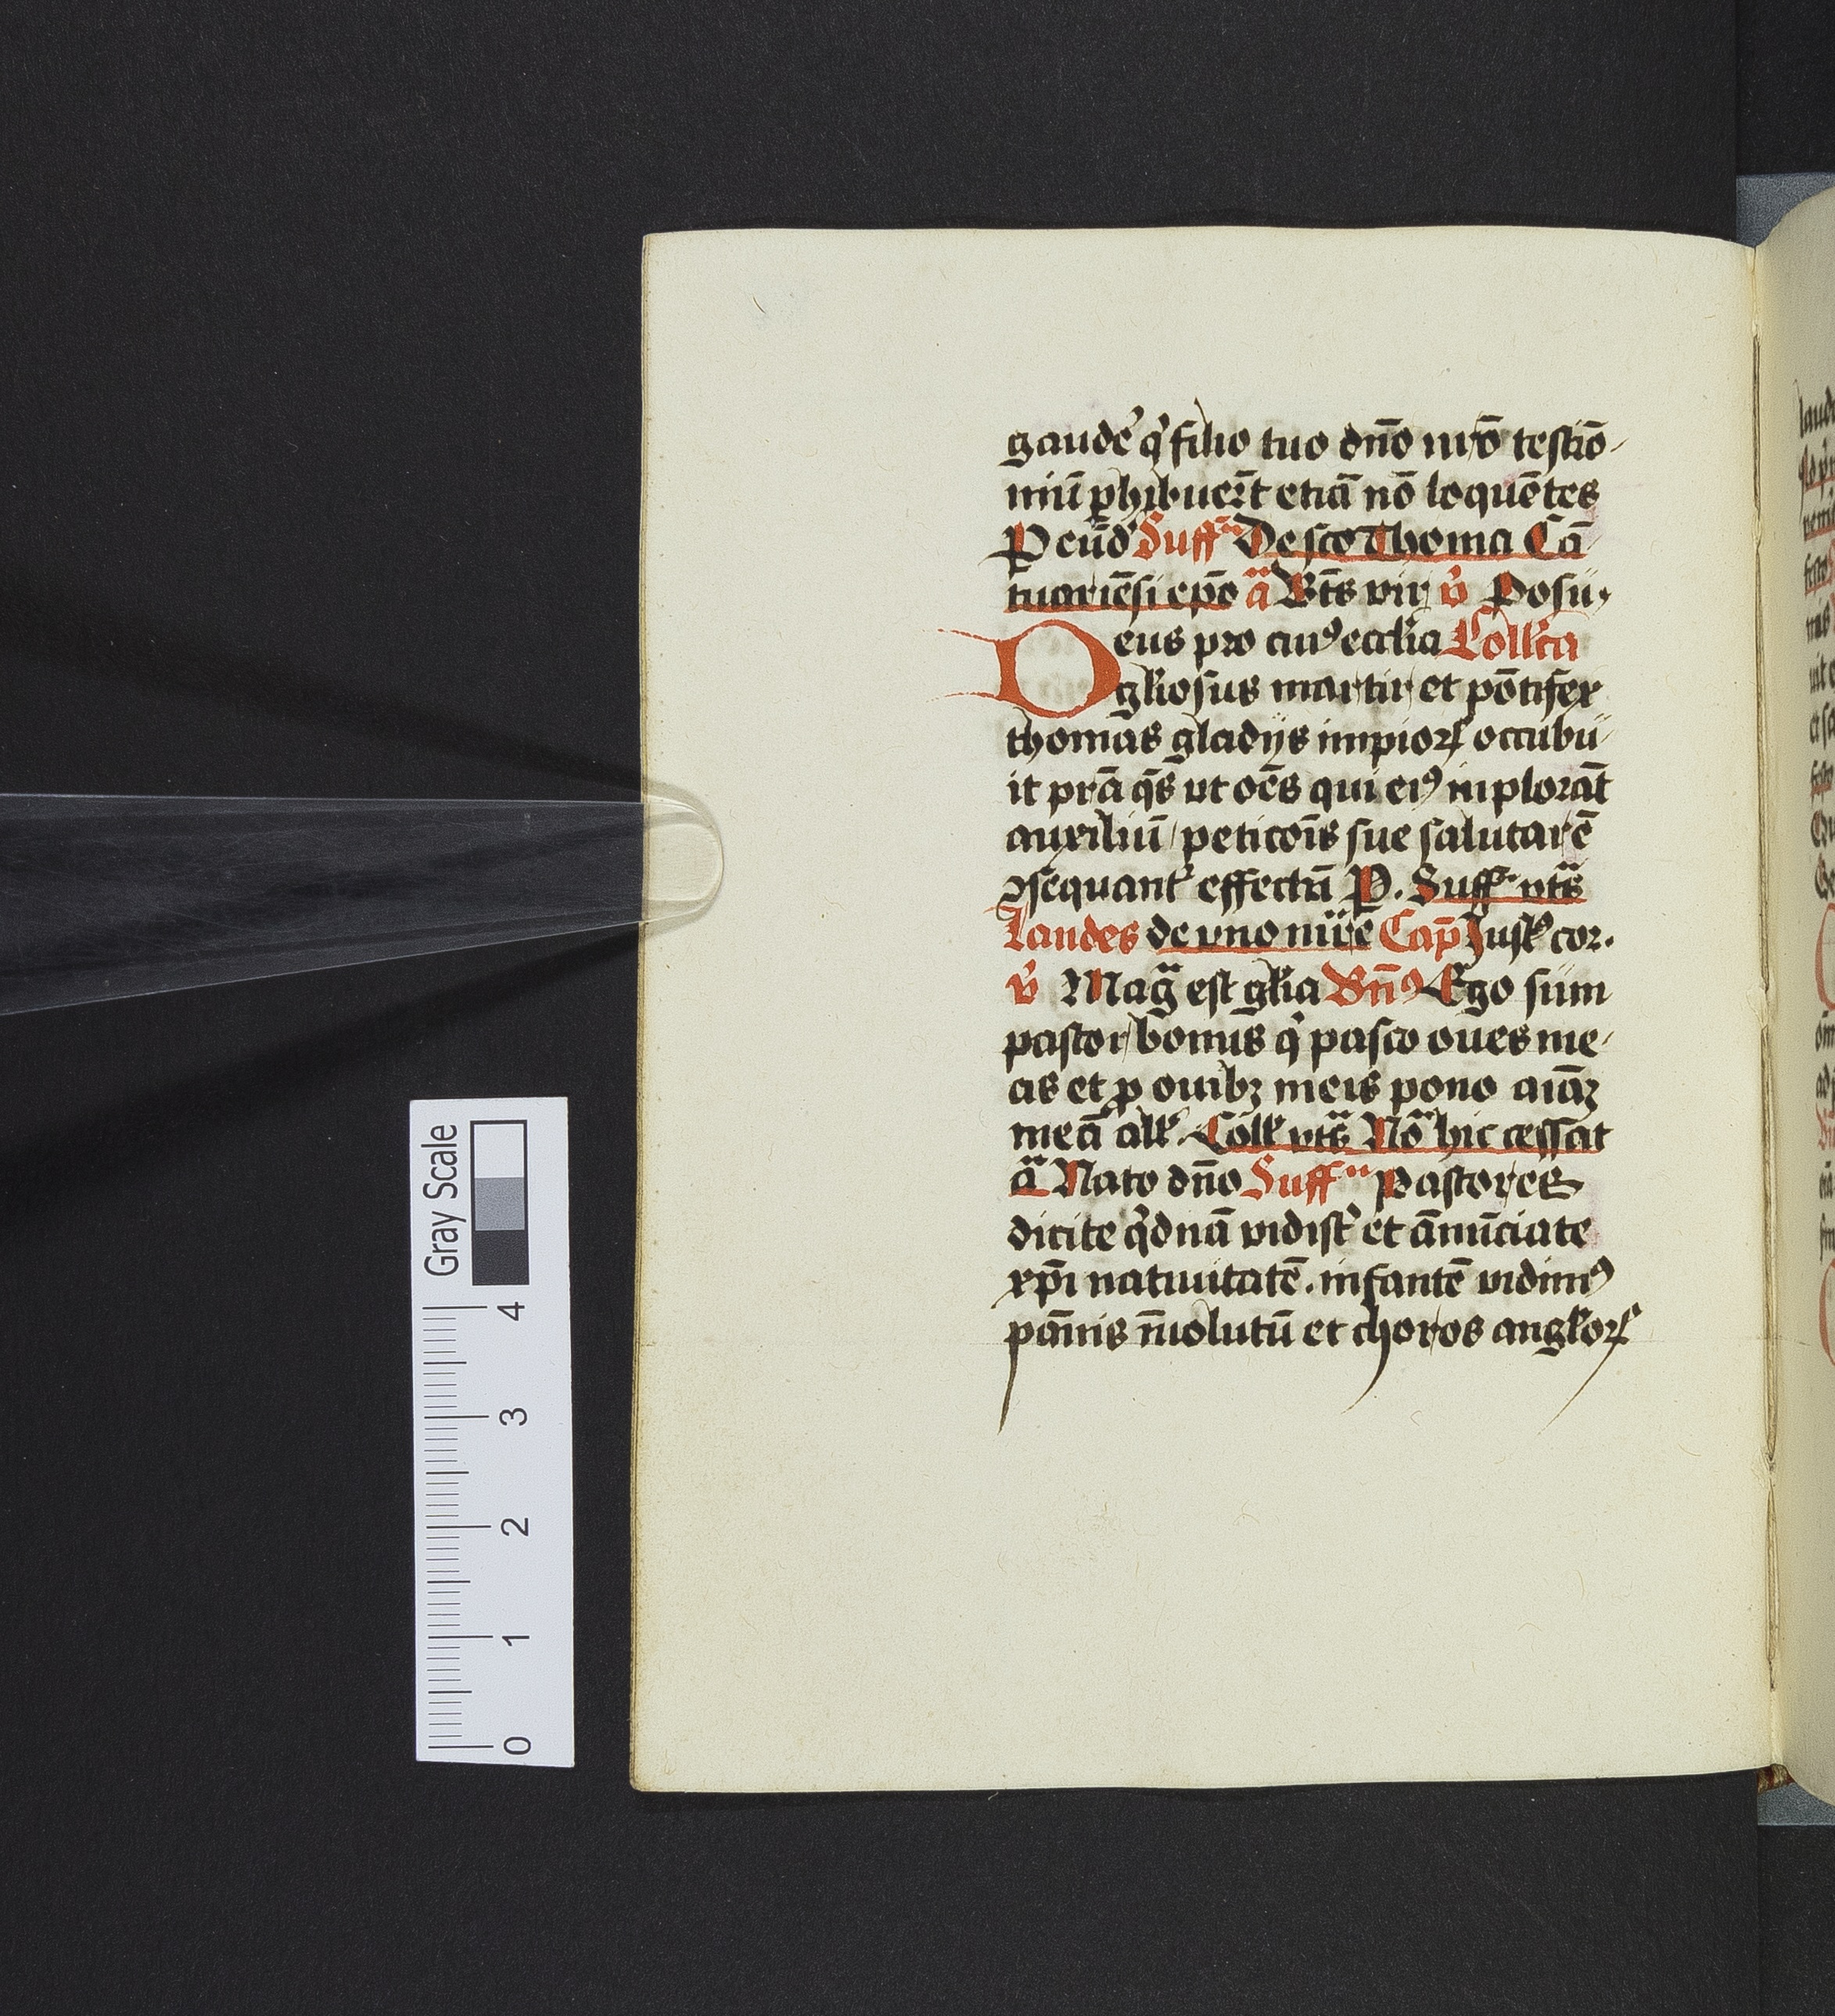 gaude' q' filio tuo dn̄o nr̄o testiō-
niū ꝑhibuer̄t etiā nō loquētes
P eūd' Suff Descō Thoma Cā
tuariēsi ep̄o a Bt̄s vir v̄ Posū
Deus pro cuiꝰ eccl̄ia Coll̄ta
gl̄iosus martir et pōtifex
thomas gladijs impioꝝ occubu-
it pr̄a q̄s vt oēs qui eiꝰ inplorāt
auxiliū peticōis sue salutarē
ꝯsequant' effectū P. Suff vts
Laudes de vno mr̄e Cap̄ Just9 cor.
v̄ Mag est gl̄ia Bn̄ꝰ Ego sum
pastor bonus q' pasco oues me-
as et ꝓ ouibꝫ meis pono aīaꝫ
meā all'. Coll' vts No hic cessat
a Nato dn̄o Suff pastores
dicite q'dnā vidist' et ānūciate
xp̄i natiuitatē. infantē vidimꝰ
pānis īuolutū et choros angl'oꝝ
Gray Scale
0 1 2 3 4